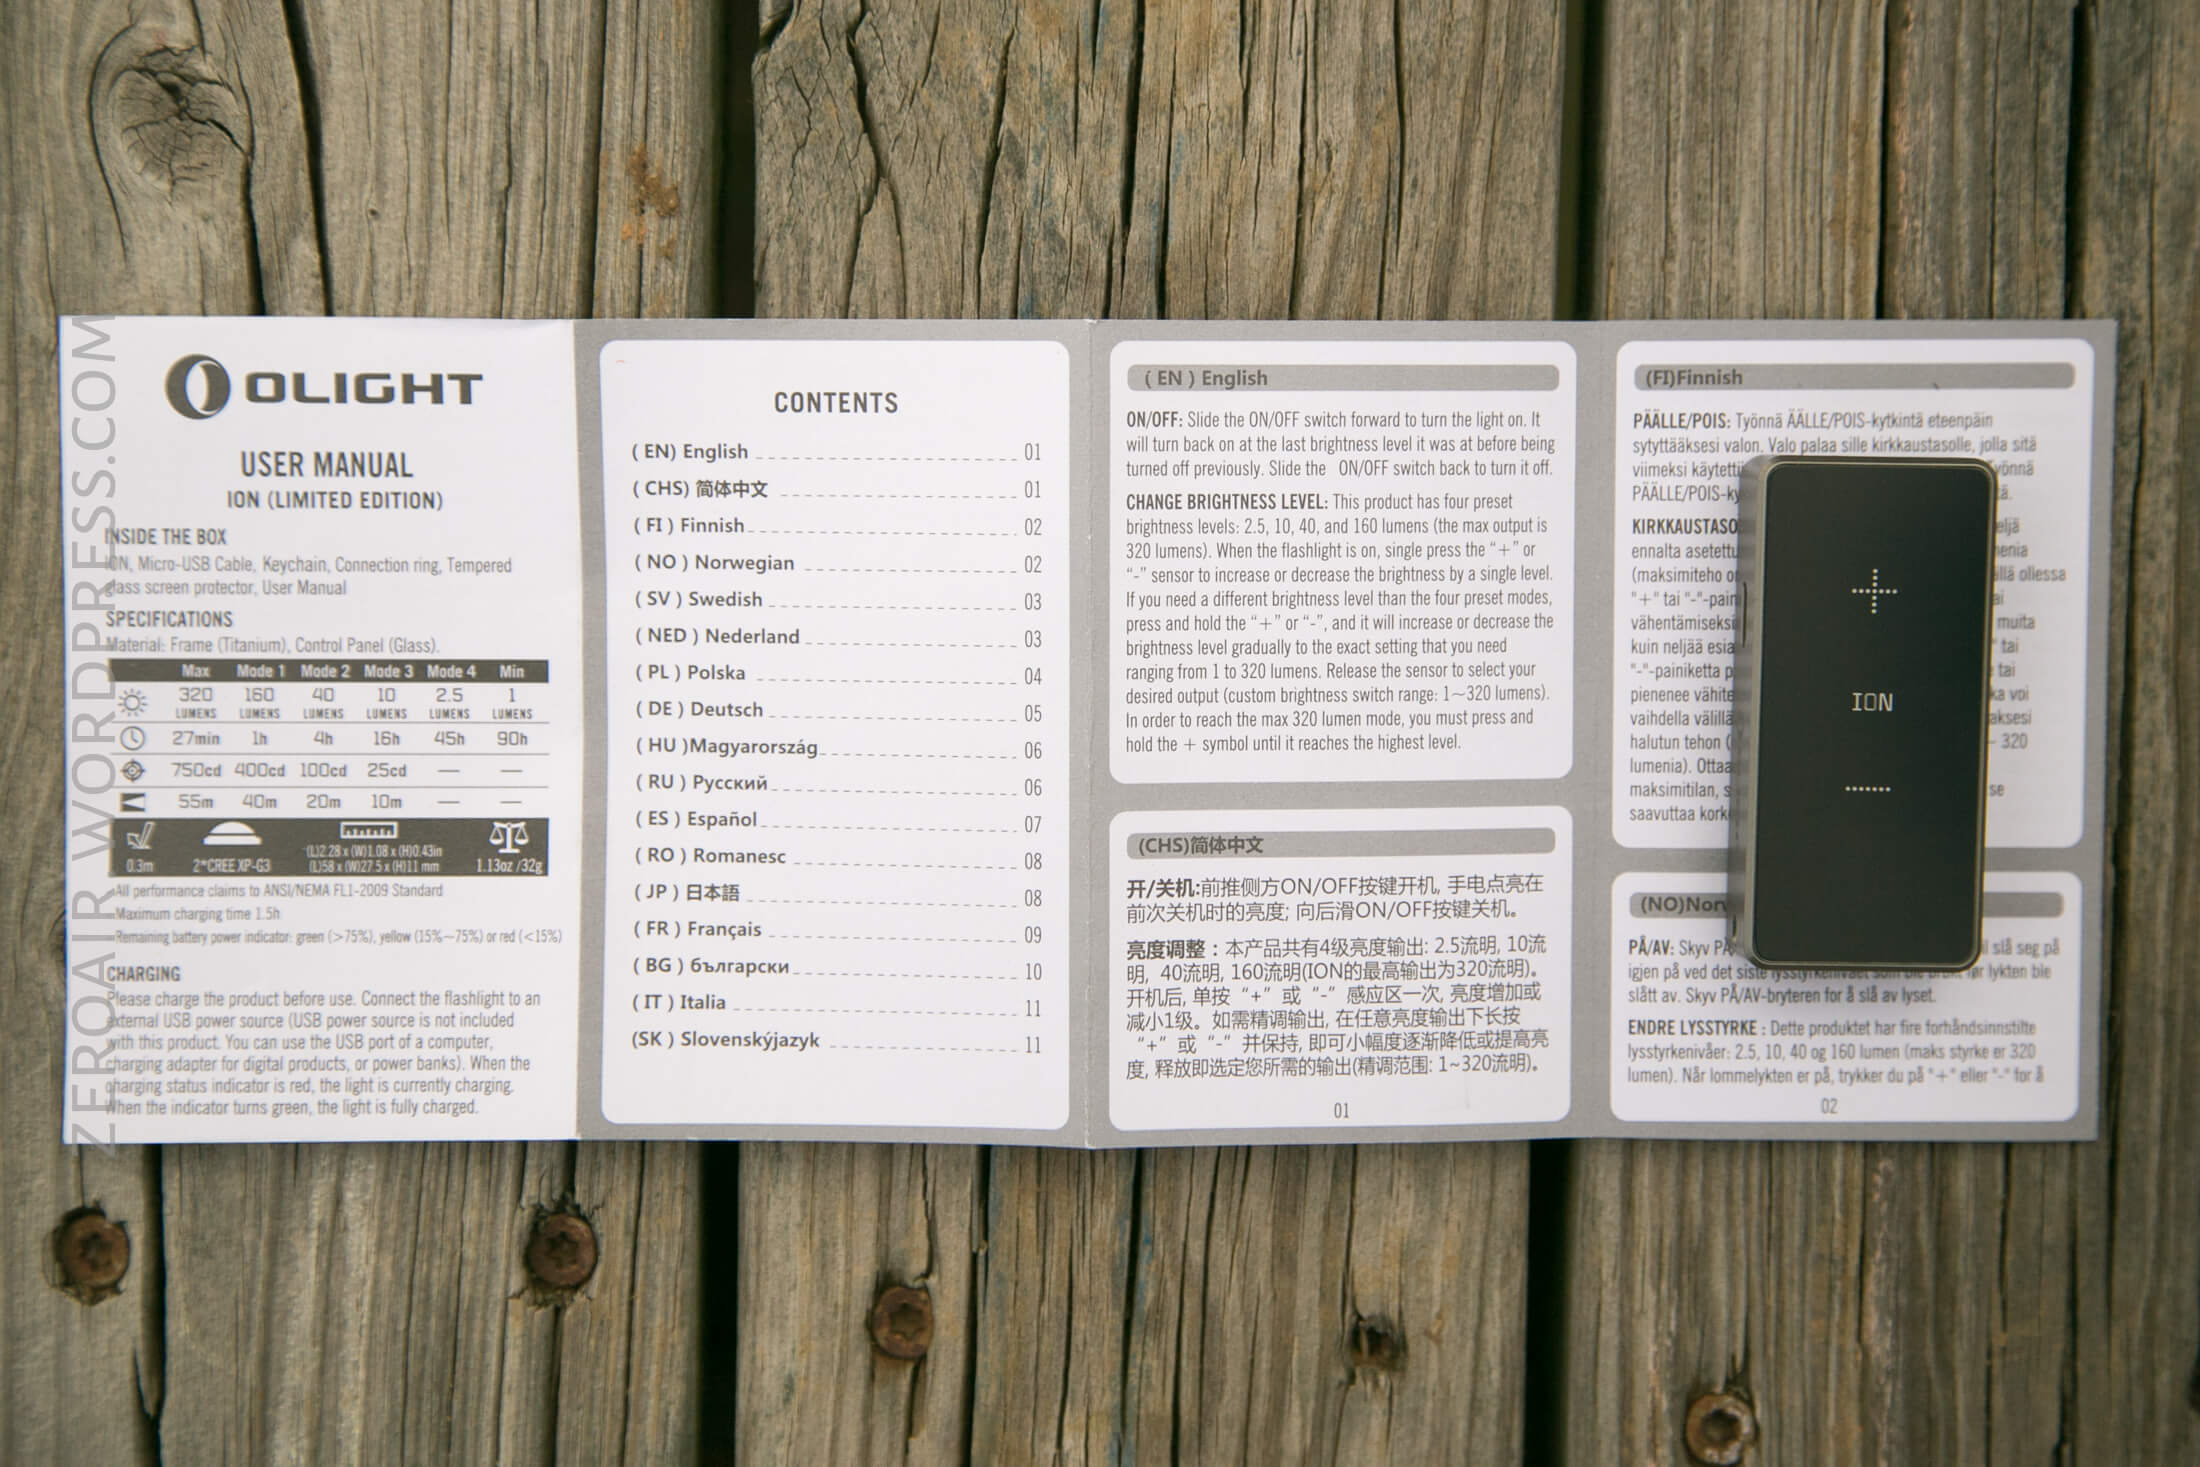 ZEROAIR.WORDPRESS.COM
OLIGHT
USER MANUAL
ION (LIMITED EDITION)
INSIDE THE BOX
ION, Micro-USB Cable, Keychain, Connection ring, Tempered
glass screen protector, User Manual
SPECIFICATIONS
Material: Frame (Titanium), Control Panel (Glass).
Max Mode 1 Mode 2 Mode 3 Mode 4 Min
320 160 40 10 2.5 1
LUMENS LUMENS LUMENS LUMENS LUMENS LUMENS
27min 1h 4h 16h 45h 90h
750cd 400cd 100cd 25cd — —
55m 40m 20m 10m — —
0.3m 2*CREE XP-G3 (L)2.28 x (W)1.08 x (H)0.43in
(L)58 x (W)27.5 x (H)11 mm 1.13oz /32g
All performance claims to ANSI/NEMA FL1-2009 Standard
Maximum charging time 1.5h
Remaining battery power indicator: green (>75%), yellow (15%~75%) or red (<15%)
CHARGING
Please charge the product before use. Connect the flashlight to an
external USB power source (USB power source is not included
with this product. You can use the USB port of a computer,
charging adapter for digital products, or power banks). When the
charging status indicator is red, the light is currently charging.
When the indicator turns green, the light is fully charged.
CONTENTS
( EN) English 01
( CHS) 简体中文 01
( FI ) Finnish 02
( NO ) Norwegian 02
( SV ) Swedish 03
( NED ) Nederland 03
( PL ) Polska 04
( DE ) Deutsch 05
( HU )Magyarország 06
( RU ) Русский 06
( ES ) Español 07
( RO ) Romanesc 08
( JP ) 日本語 08
( FR ) Français 09
( BG ) български 10
( IT ) Italia 11
(SK ) Slovenskýjazyk 11
( EN ) English
ON/OFF: Slide the ON/OFF switch forward to turn the light on. It
will turn back on at the last brightness level it was at before being
turned off previously. Slide the ON/OFF switch back to turn it off.
CHANGE BRIGHTNESS LEVEL: This product has four preset
brightness levels: 2.5, 10, 40, and 160 lumens (the max output is
320 lumens). When the flashlight is on, single press the “+” or
“-” sensor to increase or decrease the brightness by a single level.
If you need a different brightness level than the four preset modes,
press and hold the “+” or “-”, and it will increase or decrease the
brightness level gradually to the exact setting that you need
ranging from 1 to 320 lumens. Release the sensor to select your
desired output (custom brightness switch range: 1~320 lumens).
In order to reach the max 320 lumen mode, you must press and
hold the + symbol until it reaches the highest level.
(CHS)简体中文
开/关机:前推侧方ON/OFF按键开机, 手电点亮在
前次关机时的亮度; 向后滑ON/OFF按键关机。
亮度调整：本产品共有4级亮度输出: 2.5流明, 10流
明, 40流明, 160流明(ION的最高输出为320流明)。
开机后, 单按“+”或“-”感应区一次, 亮度增加或
减小1级。如需精调输出, 在任意亮度输出下长按
“+”或“-”并保持, 即可小幅度逐渐降低或提高亮
度, 释放即选定您所需的输出(精调范围: 1~320流明)。
01
(FI)Finnish
PÄÄLLE/POIS: Työnnä ÄÄLLE/POIS-kytkintä eteenpäin
sytyttääksesi valon. Valo palaa sille kirkkaustasolle, jolla sitä
viimeksi
PÄÄLLE/POIS-
ennalta
(maksimiteho ollessa
"+" tai "-"-
muita
kuin neljää tai
"-"-painiketta tai
pienenee voi
vaihdella välillä
halutun tehon ( – 320
lumenia).
maksimitilan, se
saavuttaa
(NO)
PÅ/AV: Skyv slå seg på
igjen på ved det siste lykten ble
slått av. Skyv PÅ/AV-bryteren for å slå av lyset.
ENDRE LYSSTYRKE : Dette produktet har fire forhåndsinnstilte
lysstyrkenivåer: 2.5, 10, 40 og 160 lumen (maks styrke er 320
lumen). Når lommelykten er på, trykker du på "+" eller "-" for å
02
ION